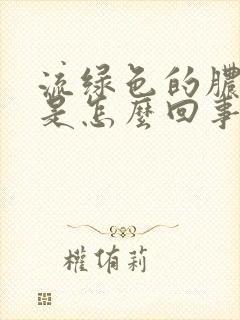 流绿色的膿
是怎麼回事
權侑莉